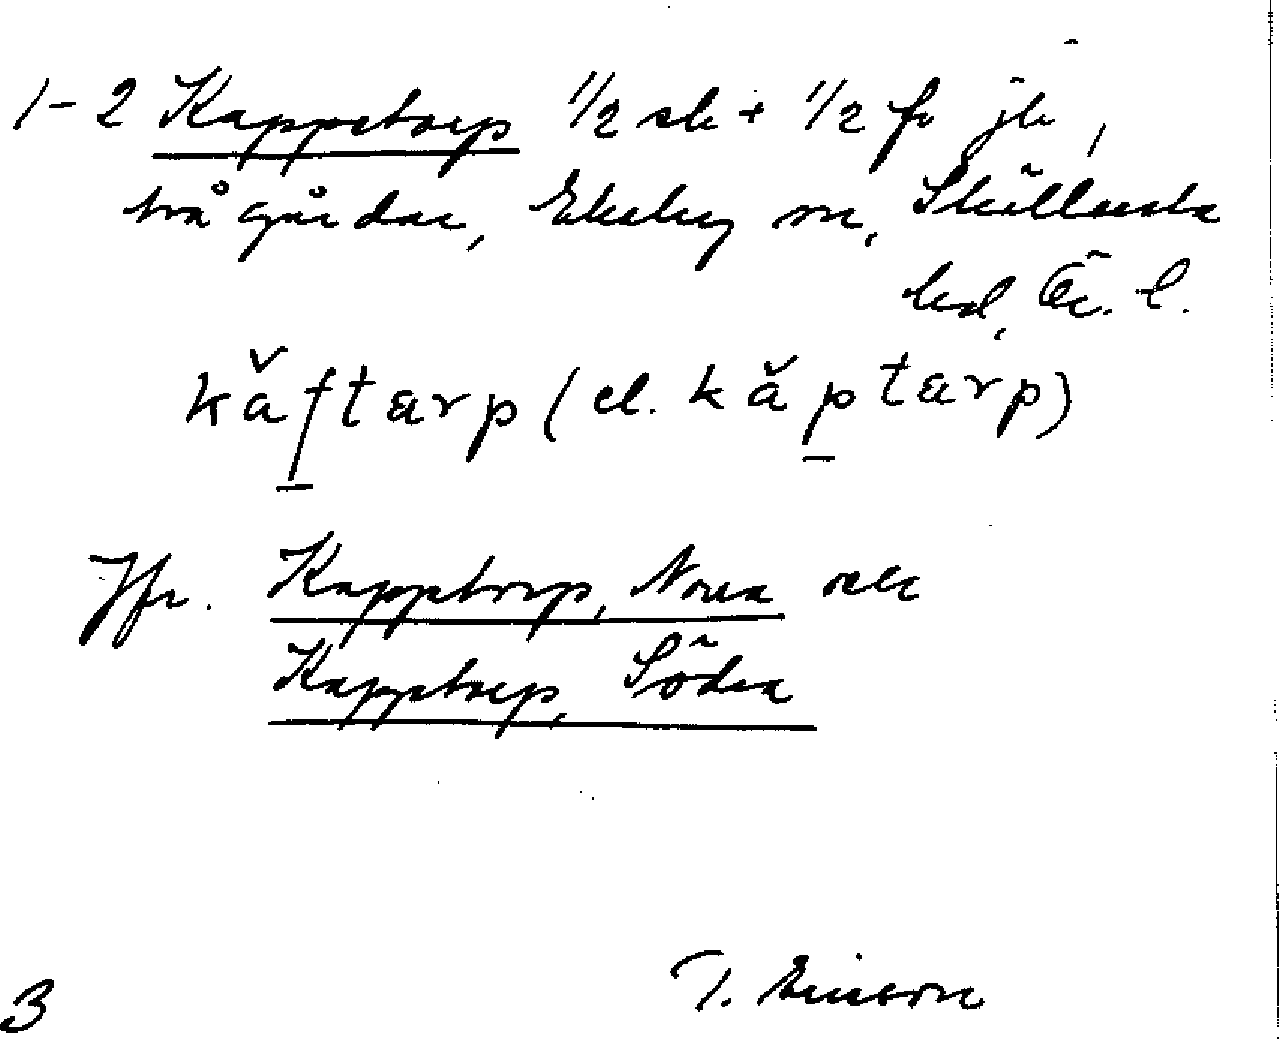 1-2 Kappetorp 1/2 sk + 1/2 fr jb,
två gårdar, Ekeby sn, Skyllersta
hd, Ör. l.
kǎftarp (el. kǎptarp)
Jfr. Kapptorp, Norra och
Kapptorp, Södra
3 T. Ericson